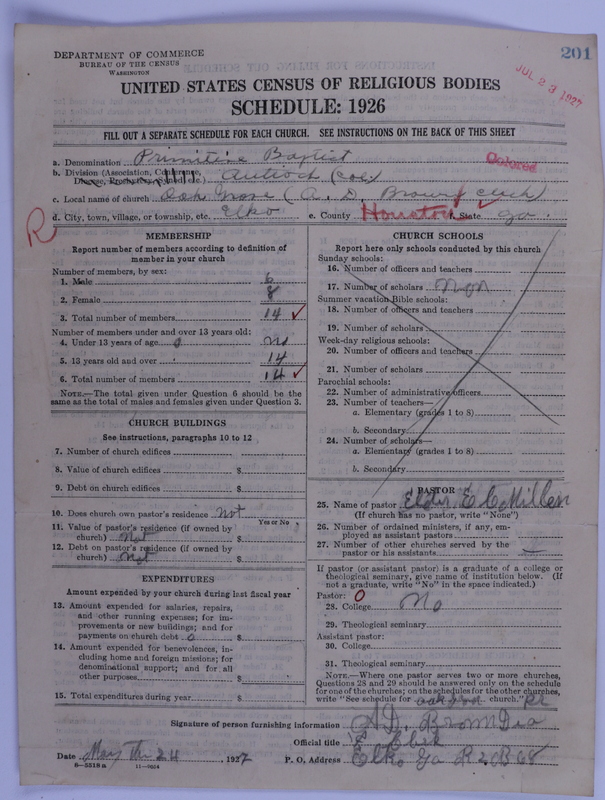 201
DEPARTMENT OF COMMERCE
BUREAU OF THE CENSUS
WASHINGTON
JUL 23 1927
UNITED STATES CENSUS OF RELIGIOUS BODIES
SCHEDULE: 1926
FILL OUT A SEPARATE SCHEDULE FOR EACH CHURCH. SEE INSTRUCTIONS ON THE BACK OF THIS SHEET
a. Denomination Primitive Baptist Colored
b. Division (Association, Conference, Diocese, Presbytery, Synod, etc.) Antioch (Col)
c. Local name of church Oak Grove (A. D. Brown clerk)
d. City, town, village, or township, etc. Elko e. County Houston f. State Ga.
R
MEMBERSHIP
Report number of members according to definition of
member in your church
Number of members, by sex:
1. Male 6
2. Female 8
3. Total number of members 14 ✓
Number of members under and over 13 years old:
4. Under 13 years of age 0 no
5. 13 years old and over 14
6. Total number of members 14 ✓
NOTE.—The total given under Question 6 should be the
same as the total of males and females given under Question 3.
CHURCH BUILDINGS
See instructions, paragraphs 10 to 12
7. Number of church edifices
8. Value of church edifices $
9. Debt on church edifices $
10. Does church own pastor's residence Not
Yes or No
11. Value of pastor's residence (if owned by
church) Not $
12. Debt on pastor's residence (if owned by
church) Not $
EXPENDITURES
Amount expended by your church during last fiscal year
13. Amount expended for salaries, repairs,
and other running expenses; for im-
provements or new buildings; and for
payments on church debt 0 $
14. Amount expended for benevolences, in-
cluding home and foreign missions; for
denominational support; and for all
other purposes $
15. Total expenditures during year $
CHURCH SCHOOLS
Report here only schools conducted by this church
Sunday schools:
16. Number of officers and teachers
17. Number of scholars Non
Summer vacation Bible schools:
18. Number of officers and teachers
19. Number of scholars
Week-day religious schools:
20. Number of officers and teachers
21. Number of scholars
Parochial schools:
22. Number of administrative officers
23. Number of teachers—
a. Elementary (grades 1 to 8)
b. Secondary
24. Number of scholars—
a. Elementary (grades 1 to 8)
b. Secondary
PASTOR
25. Name of pastor Elder E. C. Miller
(If church has no pastor, write "None")
26. Number of ordained ministers, if any, em-
ployed as assistant pastors
27. Number of other churches served by the
pastor or his assistants
If pastor (or assistant pastor) is a graduate of a college or
theological seminary, give name of institution below. (If
not a graduate, write "No" in the space indicated.)
Pastor: 0
28. College No
29. Theological seminary
Assistant pastor:
30. College
31. Theological seminary
NOTE.—Where one pastor serves two or more churches,
Questions 28 and 29 should be answered only on the schedule
for one of the churches; on the schedules for the other churches,
write "See schedule for church."
Signature of person furnishing information A. D. Brown
Official title Clerk
Date May The 24, 1927 P. O. Address Elko Ga R 2 B 68
6—5518a 11—9024